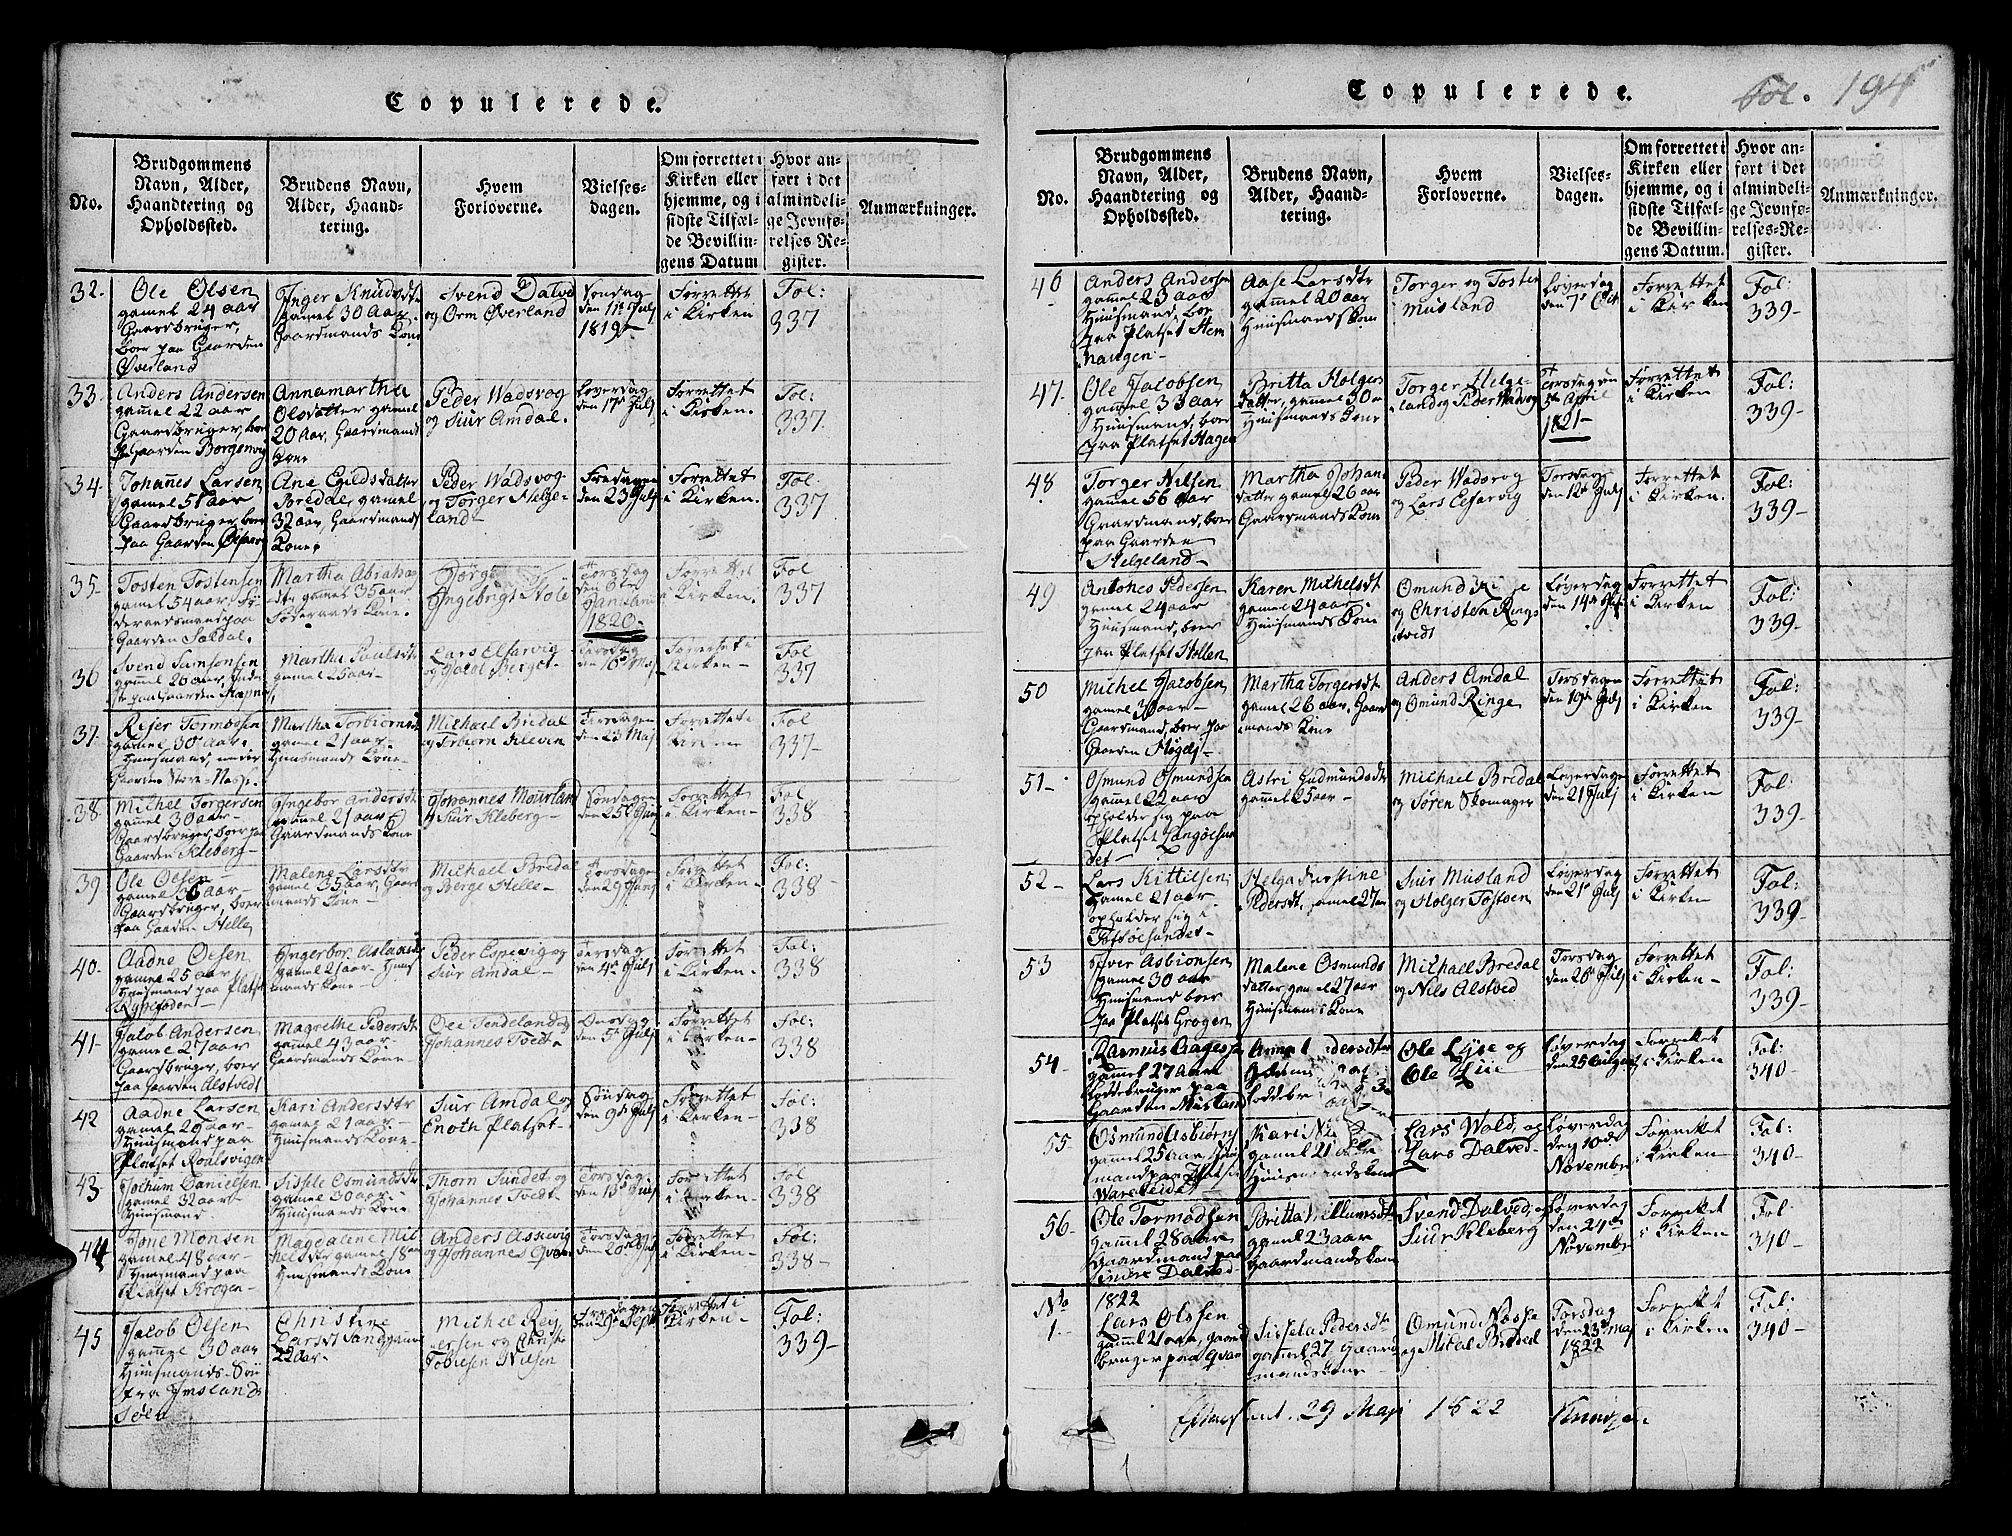 Copulerede.
No.
Brudgommens Navn, Alder, Haandtering og Opholdssted.
Brudens Navn, Alder, Haandtering.
Hvem Forloverne.
Vielsesdagen.
Om forrettet i Kirken eller hjemme, og i sidste Tilfælde Bevillingens Datum
Hvor anført i det almindelige Jevnførelses-Register.
Anmærkninger.
32.
Ole Olsen
gamel 24 aar
Gaardbruger,
boer paa Gaarden
Øverland
Inger Knudsdt.
gamel 30 Aar
Gaardmands Kone
Svend Dalve
og Orm Øverland
Søndag
den 11te Julj
1819-
Forrettet
i Kirken
Fol:
337
33.
Anders Andersen
gammel 22 aar
Gaardbruger, boer
p. Gaarden
Annamartha
Olsdatter gamel
20 Aar, Gaardmands
Kone
Peder Wadsvog
og Siur Amdal.
Løverdag
den 17de Julj
Forrettet
i Kirken.
Fol:
337
34.
Johannes Larsen
gamel 51 aar
Gaardbruger, boer
paa Gaarden
Ane Egildsdatter
Bredal, gamel
32 aar, Gaardmands
Kone,
Peder Wadsvog
og Torger Helge-
land-
Fredagen
den 23 Julj
Forrettet
i Kirken.
Fol:
337
35-
Tosten Tostensen
gamel 54 aar,
Gaarden
Martha Abraha
dtr gamel 35 aar.
Føderaads Kone-
Ingebrigt
Torsdag
den 6te
1820-
Forrettet
i Kirken.
Fol
337
36
Svend Samsonsen
gammel 26 aar,
Martha Paulsdt
gamel 25 aar-
Lars Elfarvig
og
Forrettet i
Kirken-
Fol
337
37.
Reier Tormodsen
gamel 30 aar.
Huusmand, under
Gaarden Store-
Martha Torbiørnsd
gamel 21 aar-
Huusmands Kone-
Michael Bredal
og Torbiørn Kleven
den 23 Maj
Forrettet i
Kirken
Fol
337-
38.
Michel Torgersen
gamel 30 aar-
Gaardbruger, boer paa
Gaarden Kleberg-
Ingebor Andersdt
gamel 21 aar
Gaardmands Kone
Johannes Mourland
og Siur Kleberg-
Søndagen
den 25de Junj
Forrettet
i Kirken-
Fol
338
39
Ole Olsen
gamel
Gaardbruger, boer
paa Gaarden Helle
Malene Larsdtr
gamel 35 aar, Gaard
mands Kone-
Michael Bredal
og Berge Helle-
Torsdagen
den 29 Junj
Forrettet
i Kirken-
Fol:
338-
40-
Aadne Olsen
gamel 25 aar
Huusmand paa Platset
Ingerbor Aslaksd
gamel 21 aar- Huus
mands Kone-
Peder Espevig og
Siur Amdal-
den 4de Julj
Forrettet
i Kirken-
Fol:
338
41-
Jacob Andersen
gamel 27 aar
Gaardbruger, boer
paa Gaarden Alstvedt
Magrethe Pedersdt
gamel 43 aar-
Gaardmands Kone-
Ole Tendeland og
Johannes Tvedt
Onsdag
den 5te Julj
Forrettet
i Kirken-
Fol:
338
42
Aadne Larsen
gamel 29 aar-
Huusmand paa
Platset Roalsvigen
Kari Andersdtr
gamel 21 aar-
Huusmands Kone-
Siur Amdal og
Enoth Platset-
Søndag
den 9de Julj
Forrettet
i Kirken-
Fol:
338
43
Jochum Danielsen
gamel 32 aar-
Huusmand
Sissele Osmundsdt
gamel 30 aar-
Huusmands Kone-
Thorn Sundet og
Johannes Tvedt-
Torsdag-
den 13de Julj
Forrettet
i Kirken-
Fol
338
44
Jone Monsen
gamel 48 aar-
Huusmand paa
Platset Krogen-
Magdalene Mic
helsdtr gamel 18 aar
Huusmands Kone
Anders Assevig
og Johannes
Torsdag
den 20de Julj
Forrettet
i Kirken-
Fol:
338-
45
Jacob Olsen
gammel 30 aar
Huusmands-Søn
fra Imsland
Søen
Christine
Larsdt
22 aar-
Michel Rey
ersen og Christ
Tobiesen Nilsen
Fredagen
den 29de Septbr
Forrettet i
Kirken-
Fol:
339-
Copulerede.
Fol. 194
No.
Brudgommens Navn, Alder, Haandtering og Opholdssted.
Brudens Navn, Alder, Haandtering.
Hvem Forloverne.
Vielsesdagen.
Om forrettet i Kirken eller hjemme, og i sidste Tilfælde Bevillingens Datum.
Hvor anført i det almindelige Jevnførelses-Register.
Anmærkninger.
46
Anders Andersen
gamel 23 aar
Huusmand, boer
paa Platset Hem
nangen-
Aase Larsdtr
gammel 20 aar
Huusmands Kone
Torger og Tosten
Musland
Løverdag
den 7de Oct
Forrettet
i Kirken
Fol:
339-
47.
Ole Jacobsen
gamel 33 aar
Huusmand, boer
paa Platset Hagen
Britta Holger
datter, gamel 30
Huusmands Kone
Torger Helge-
land og Peder Wadsvog
Torsdagen
5te April
1821-
Forrettet
i Kirken
Fol:
339-
48
Torger Nilsen
gammel 56 aar
Gaardmand, boer
paa Gaarden
Helgeland-
Martha Johan
datter gamel 26 aar
Gaardmands Kone
Peder Wadsvog
og Lars Elfarvig
Torsdag
den 12te Julj
Forrettet
i Kirken.
Fol:
339-
49
Antones Pedersen
gamel 24 aar
Huusmand, boer
paa Platset Hollen
Karen Michelsdt
gamel 24 aar
Huusmands Kone
Omund Ringe
og Christen Rings
tvedt
Løverdag
den 14de Julj
Forrettet
i Kirken
Fol:
339-
50
Michel Jacobsen
gamel 30 aar-
Gaardmand, boer paa
Gaarden
Martha Torgersdt
gamel 26 aar, Gaard
mands Kone
Anders Amdal
og Omund Ringe
Torsdagen
den 19de Julj
Forrettet
i Kirken
Fol:
339-
51-
Osmund Osmundsen
gamel 22 aar
opholder sig paa
Platset Langøesun
det-
Astri Gudmundsdtr
gammel 25 aar-
Michael Bredal
og Søren Skomager
Løverdagen
den 21 Julj
Forrettet
i Kirken
Fol:
339-
52-
Lars Kittilsen
Gamel 21 aar-
opholder sig i
Toftøesundet-
Helga Kirstine
Pedersdt, gamel 27
Siur Musland
og Holger Tostven
Løverdag
den 21de Julj
Forrettet
i Kirken
Fol:
339-
53
Iver Asbionsen
gamel 30 aar
Huusmand boer
paa Platset Grogen
Malene Osmunds
datter, gamel 27 aar
Huusmands Kone
Michael Bredal
og Nils Alstved
Torsdag
den 26de Julj
Forrettet
i Kirken-
Fol:
339-
54-
Rasmus Aagesen
gammel 27 aar
Lodbruger paa
Gaarden Musland
Anna
Ole Lyse og
Ole Lie
Løverdag
den 25 August
Forrettet
i Kirken
Fol:
340-
55
Osmund Asbiørn
gammel 25 aar, Huus
mand paa Platse
Kari
gammel 21 aar
Huusmandskone
Lars Wold, og
Lars Dalved-
Løverdag
den 10de
November
Forrettet
i Kirken
Fol:
340-
56-
Ole Tormodsen
gammel 28 aar
Gaardmand paa
Indre Dalved-
Britta Villumsdt
gammel 23 aar
Gaardmandskone
Svend Dalved, og
Siur Kleberg
Løverdag
den 24de
November
Forrettet
i Kirken
Fol:
340-
No
1-
1822
Lars Olssen
gaml 21 aar, gaard
bruger paa
Sissela Pedersdtr
gammel 27 Gaard
mandskone
Omund Nasse
og Michel Bredal
Torsdag
den 23de Maj
1822
Forrettet
i Kirken
Fol:
340-
29 Maji 1822